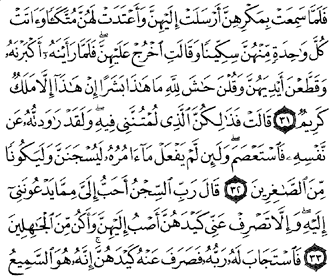 فَلَمَّا سَمِعَتْ بِمَكْرِهِنَّ أَرْسَلَتْ إِلَيْهِنَّ وَأَعْتَدَتْ لَهُنَّ مُتَّكَـًٔا وَءَاتَتْ
كُلَّ وَٰحِدَةٍ مِّنْهُنَّ سِكِّينًا وَقَالَتِ ٱخْرُجْ عَلَيْهِنَّ ۖ فَلَمَّا رَأَيْنَهُۥٓ أَكْبَرْنَهُۥ
وَقَطَّعْنَ أَيْدِيَهُنَّ وَقُلْنَ حَٰشَ لِلَّهِ مَا هَٰذَا بَشَرًا إِنْ هَٰذَآ إِلَّا مَلَكٌ
كَرِيمٌ ٣١ قَالَتْ فَذَٰلِكُنَّ ٱلَّذِى لُمْتُنَّنِى فِيهِ ۖ وَلَقَدْ رَٰوَدتُّهُۥ عَن
نَّفْسِهِۦ فَٱسْتَعْصَمَ ۖ وَلَئِن لَّمْ يَفْعَلْ مَآ ءَامُرُهُۥ لَيُسْجَنَنَّ وَلَيَكُونًا
مِّنَ ٱلصَّٰغِرِينَ ٣٢ قَالَ رَبِّ ٱلسِّجْنُ أَحَبُّ إِلَىَّ مِمَّا يَدْعُونَنِىٓ
إِلَيْهِ ۖ وَإِلَّا تَصْرِفْ عَنِّى كَيْدَهُنَّ أَصْبُ إِلَيْهِنَّ وَأَكُن مِّنَ ٱلْجَٰهِلِينَ
٣٣ فَٱسْتَجَابَ لَهُۥ رَبُّهُۥ فَصَرَفَ عَنْهُ كَيْدَهُنَّ ۚ إِنَّهُۥ هُوَ ٱلسَّمِيعُ